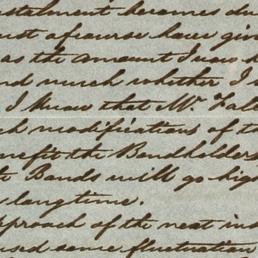 stalment becomes du
ust ofcourse have giv
as the amount I now h
nd much whether I s
I know that Mr Fall
ch modifications of t
enefit the Bondholders
Bonds will go hig
longtime.
pproach of the next in
used some fluctuation